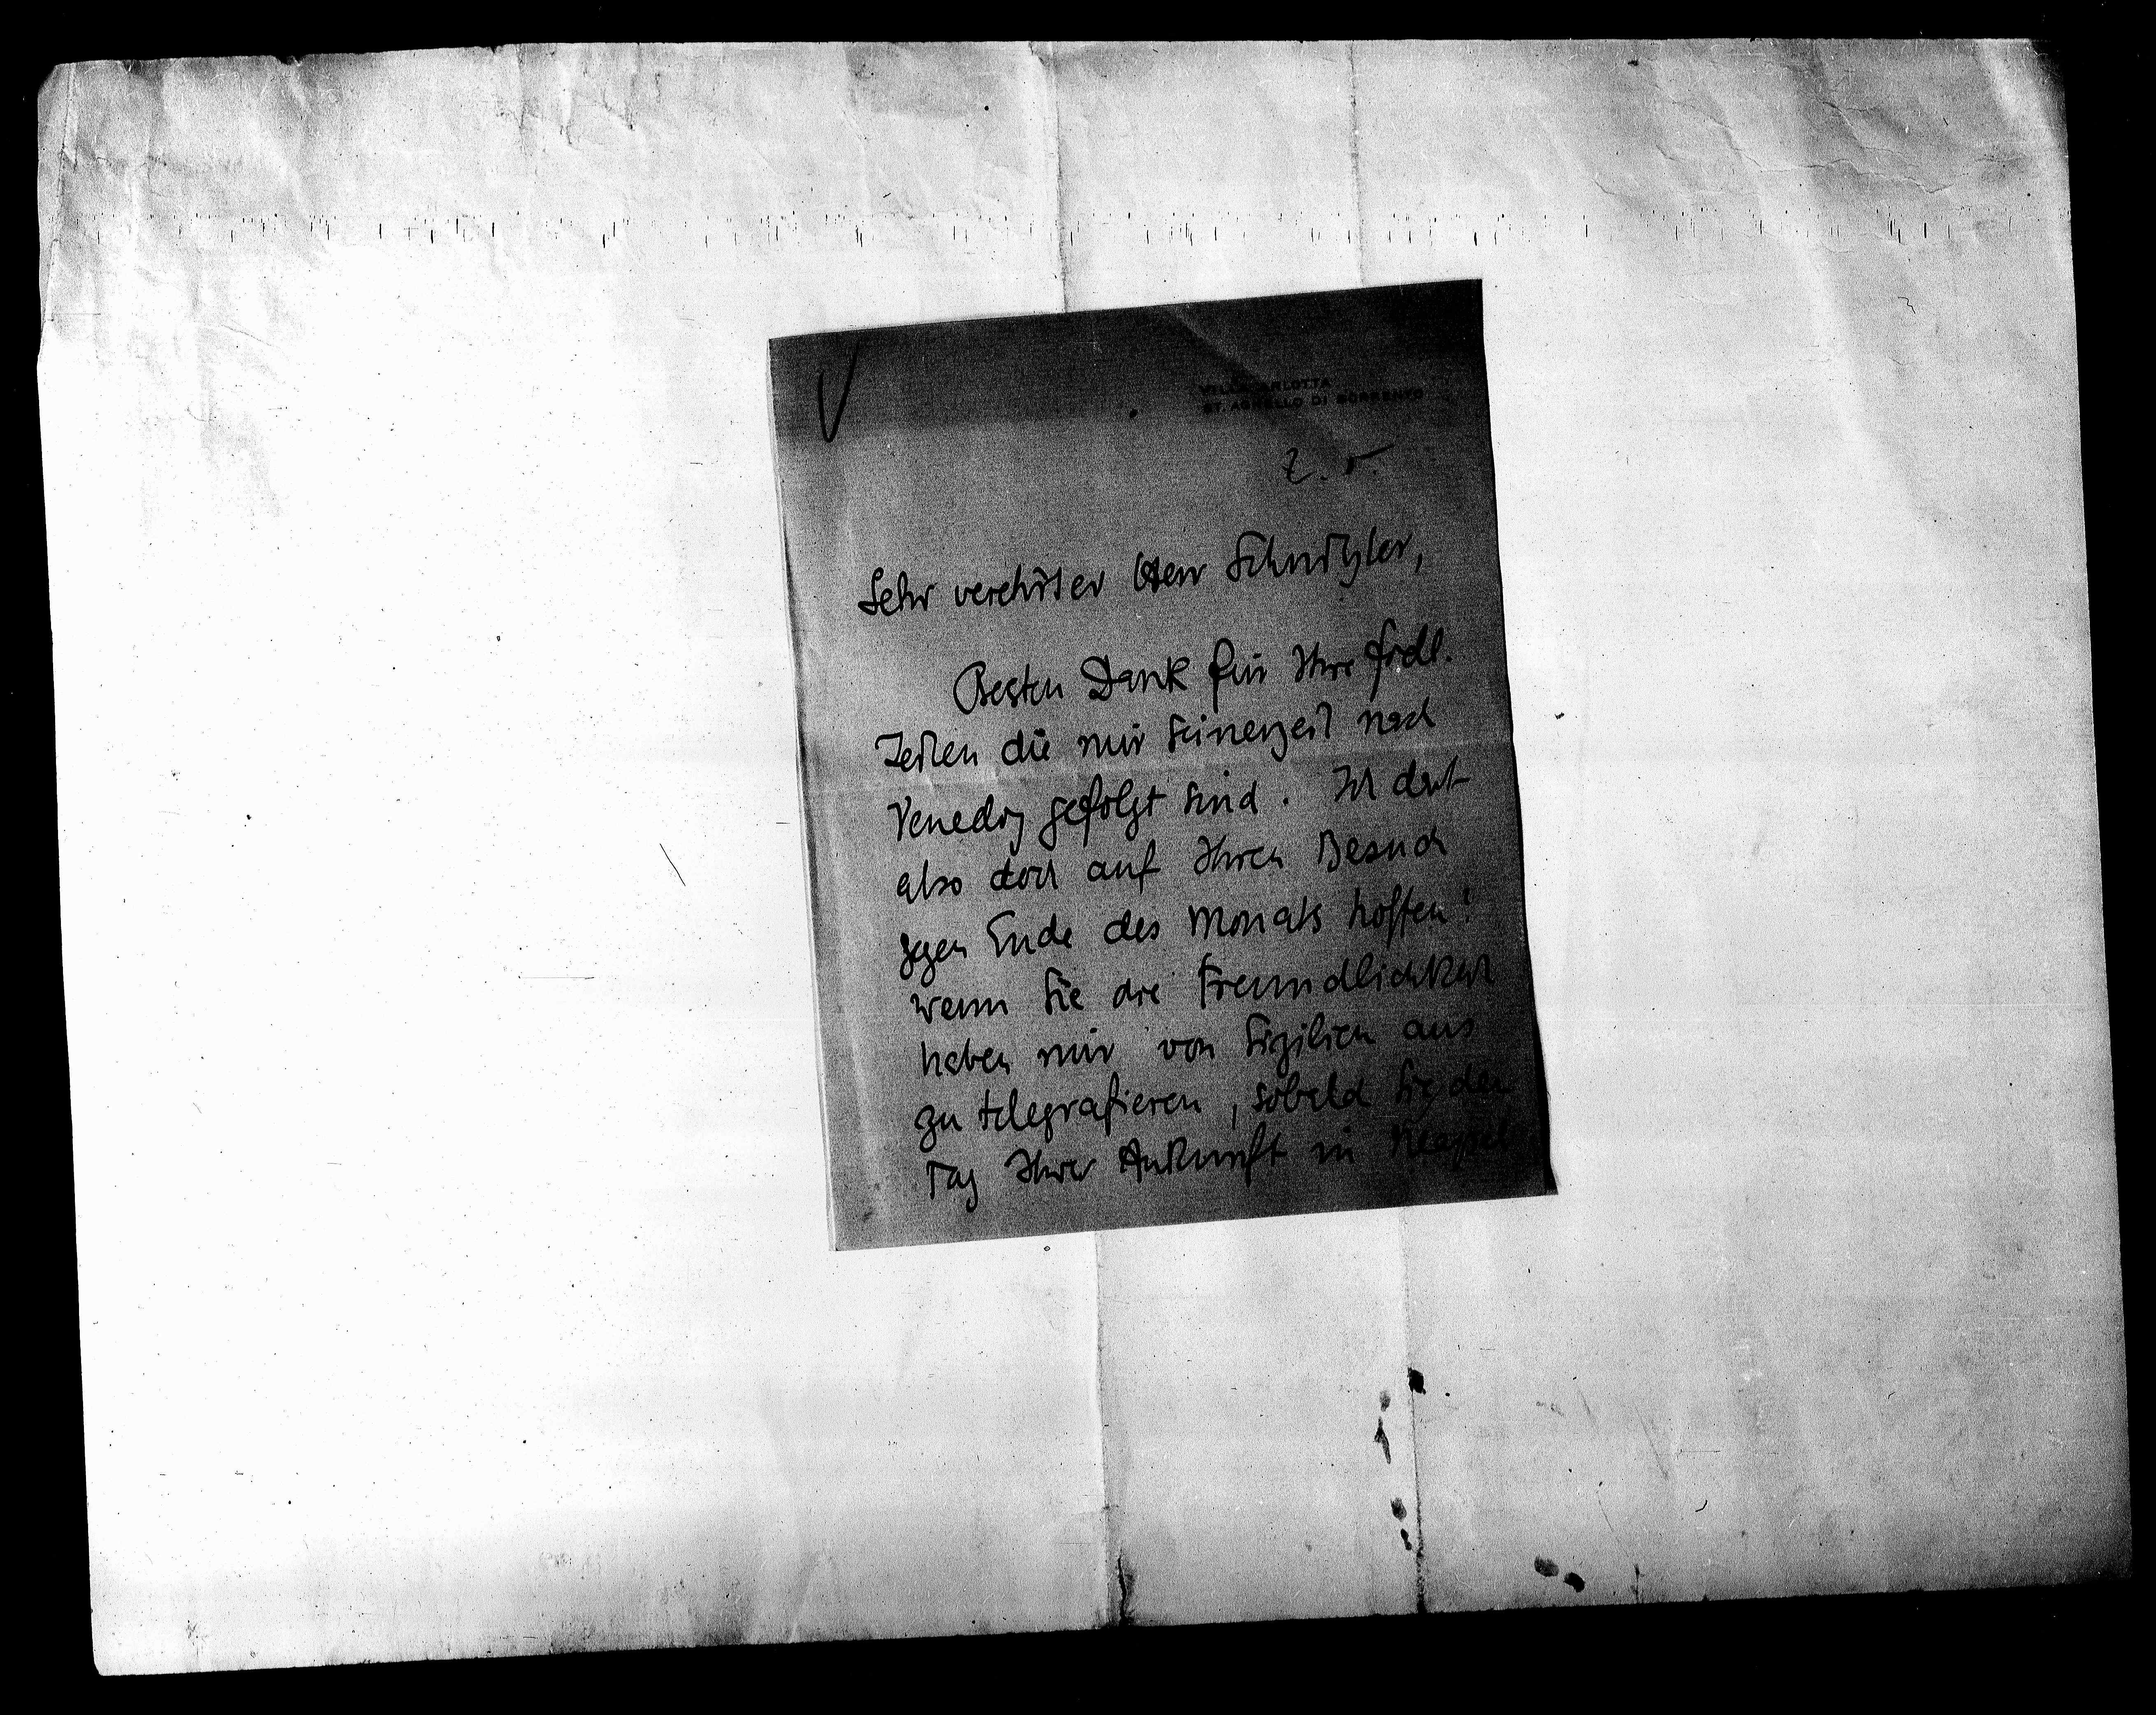 VILLA CARLOTTA
ST. AGNELLO DI SORRENTO
Sehr verehrter Herr Schnitzler,
Besten Dank für Ihre frdl.
Zeilen die mir seinerzeit nach
Venedig gefolgt sind. Ich darf
also doch auf Ihren Besuch
gegen Ende des Monats hoffen!
wenn Sie die Freundlichkeit
haben mir von Sizilien aus
zu telegrafieren, sobald Sie den
Tag Ihrer Ankunft in Neapel